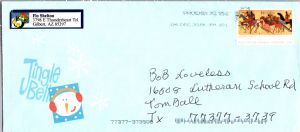 Flo Skelton
7798 E Thunderheart Trl.
Gilbert, AZ 85297
PHOENIX AZ 852
Jingle
Bell
Bob Loveless
16008 Lutheran School Rd
Tomball
Tx 77377-3779